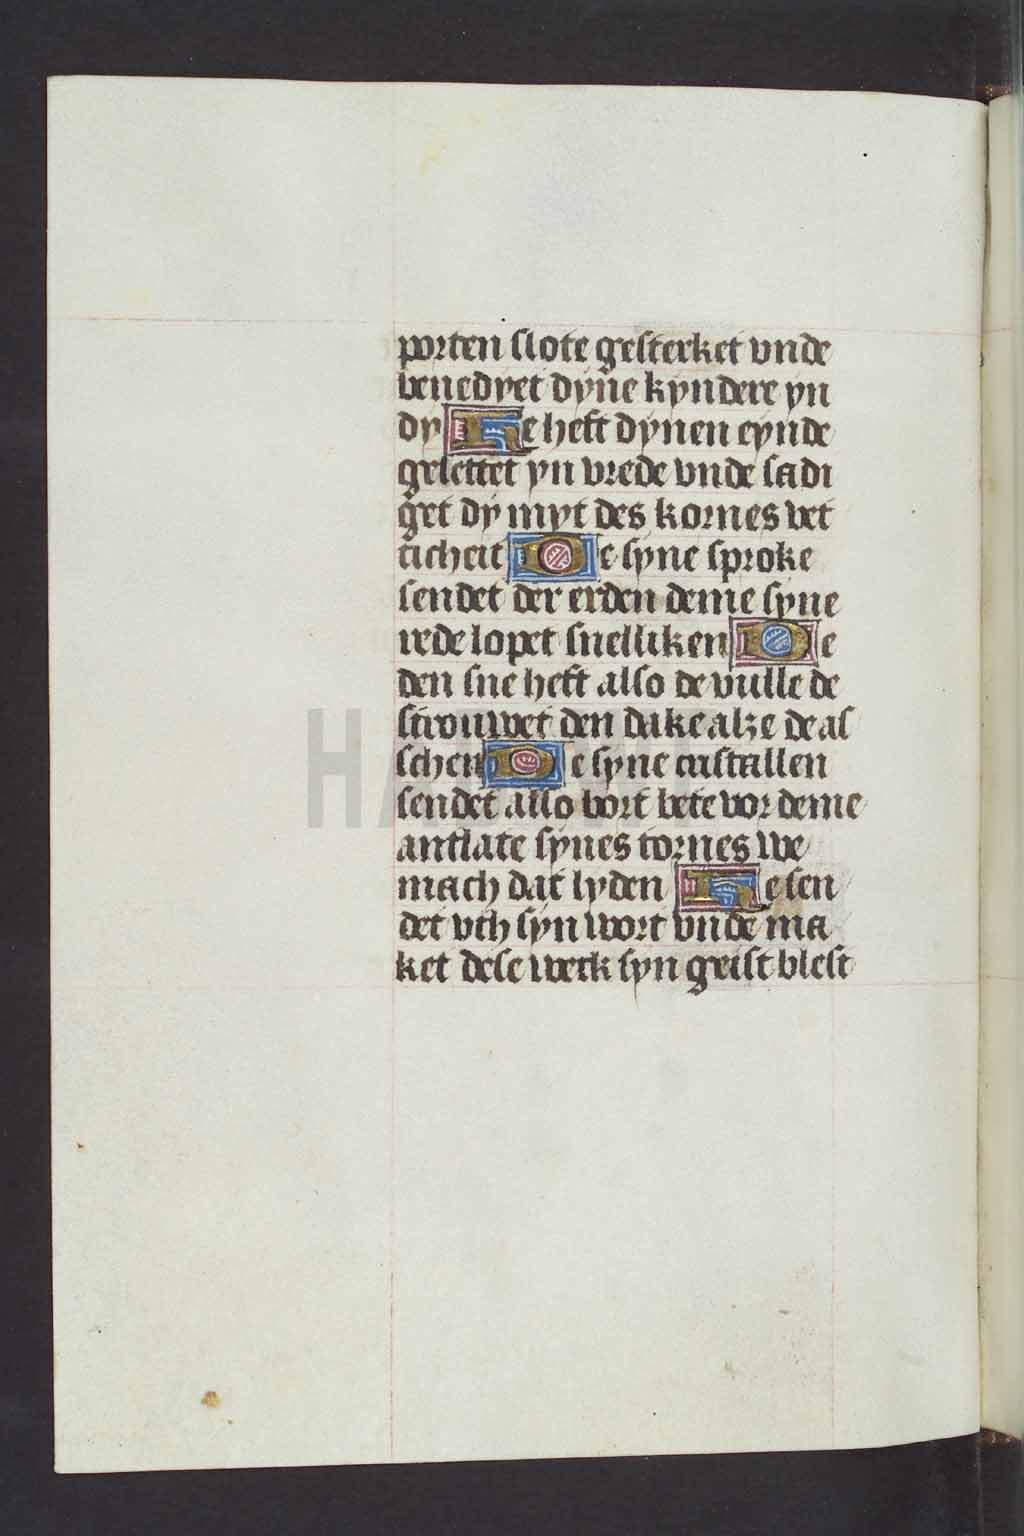 porten slote gesterket vnde
benedyet dyne kyndere yn
dy He heft dynen eynde
gelettet yn vrede vnde sadi
get dy myt des kornes vet
ticheit De syne sproke
sendet der erden deme syne
rede lopet snelliken De
den sne heft also de wulle de
strouwet den dake alze de as
schen De syne cristallen
sendet also bort bete vor deme
antlate synes tornes we
mach dat lyden He sen
det vth syn wort vnde ma
ket dese werk syn geist blest